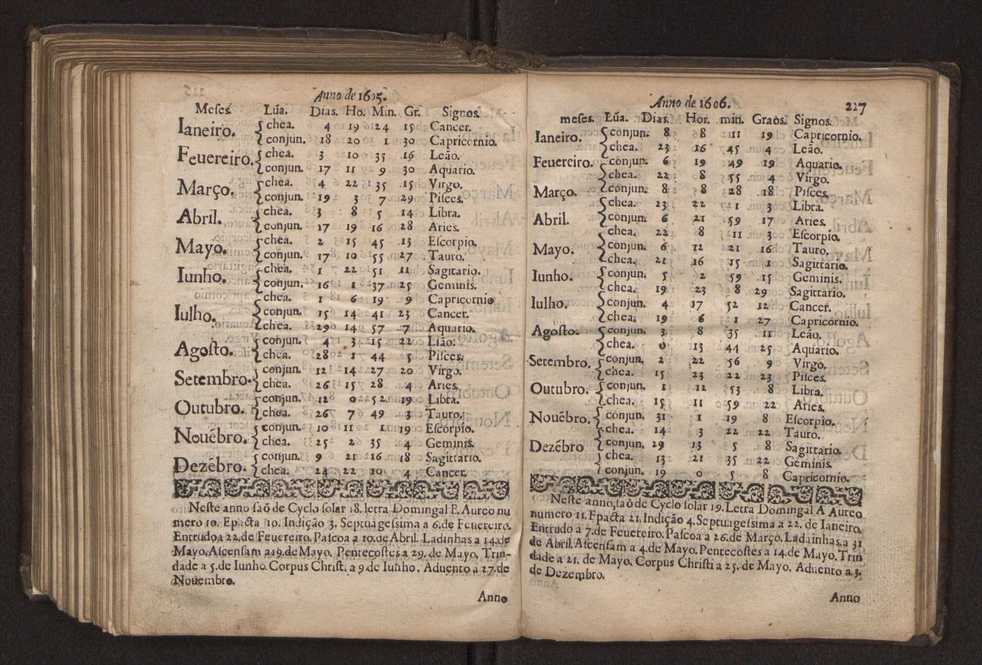 Anno de 1605.
Meses. Lũa. Dias. Ho. Min. Gr. Signos.
Ianeiro. chea. 4 19 24 15 Cancer.
conjun. 18 20 1 30 Capricornio.
Feuereiro. chea. 3 10 35 16 Leão.
conjun. 17 11 9 30 Aquario.
Março. chea. 4 22 35 15 Virgo.
conjun. 19 3 7 29 Pisces.
Abril. chea. 3 8 5 14 Libra.
conjun. 17 19 16 28 Aries.
Mayo. chea. 2 15 45 13 Escorpio.
conjun. 17 10 55 27 Tauro.
Iunho. chea. 1 22 51 11 Sagittario.
conjun. 16 1 37 25 Geminis.
chea. 1 6 19 9 Capricornio
Iulho. conjun. 15 14 41 23 Cancer.
chea. 29 14 57 7 Aquario.
Agosto. conjun. 4 3 15 22 Lião.
chea. 28 1 44 5 Pisces.
Setembro. conjun. 12 14 27 20 Virgo.
chea. 26 15 28 4 Aries.
Outubro. conjun. 12 0 52 19 Libra.
chea. 26 7 49 3 Tauro.
Nouẽbro. conjun. 10 11 1 19 Escorpio.
chea. 25 2 35 4 Geminis.
Dezẽbro. conjun. 9 21 16 18 Sagittario.
chea. 24 22 10 4 Cancer.
Neste anno saõ de Cyclo solar 18. letra Domingal B. Aureo nu
mero 10. Epacta 10. Indição 3. Septuagessima a 6. de Feuereiro.
Entrudo a 22. de Feuereiro. Pascoa a 10. de Abril. Ladainhas a 14. de
Mayo. Ascensam a 19. de Mayo. Pentecostes a 29. de Mayo. Trin-
dade a 5. de Iunho. Corpus Christi. a 9. de Iunho. Aduento a 27. de
Nouembro.
Anno
Anno de 1606. 227
meses. Lũa. Dias. Hor. min. Graos. Signos.
Ianeiro. conjun. 8 8 11 19 Capricornio.
chea. 23 16 45 4 Leão.
Feuereiro. conjun. 6 19 49 19 Aquario.
chea. 22 8 55 4 Virgo.
Março. conjun. 8 8 28 18 Pisces.
chea. 23 22 1 3 Libra.
Abril. conjun. 6 21 59 17 Aries.
chea. 22 8 11 3 Escorpio.
Mayo. conjun. 6 12 21 16 Tauro.
chea. 21 16 15 1 Sagittario.
Iunho. conjun. 5 2 59 15 Geminis.
chea. 19 23 8 29 Sagittario.
Iulho. conjun. 4 17 52 12 Cancer.
chea. 19 6 1 27 Capricornio.
Agosto. conjun. 3 8 35 11 Leão.
chea. 0 13 44 25 Aquario.
Setembro. conjun. 2 22 56 9 Virgo.
chea. 15 23 22 23 Pisces.
Outubro. conjun. 1 12 53 8 Libra.
chea. 15 11 59 22 Aries.
Nouẽbro. conjun. 31 1 19 8 Escorpio.
chea. 14 3 22 22 Tauro.
Dezẽbro conjun. 29 13 5 8 Sagittario.
chea. 13 21 35 22 Geminis.
conjun. 19 0 5 8 Capricornio.
Neste anno, saõ de Cyclo solar 19. Letra Domingal A Aureo
numero 11. Epacta 21. Indição 4. Septuagessima a 22. de Ianeiro.
Entrudo a 7. de Feuereiro. Pascoa a 26. de Março. Ladainhas a 31
de Abril. Ascensam a 4. de Mayo. Pentecostes a 14. de Mayo. Trin
dade a 21. de Mayo. Corpus Christi a 25. de Mayo. Aduento a 3.
de Dezembro.
Anno